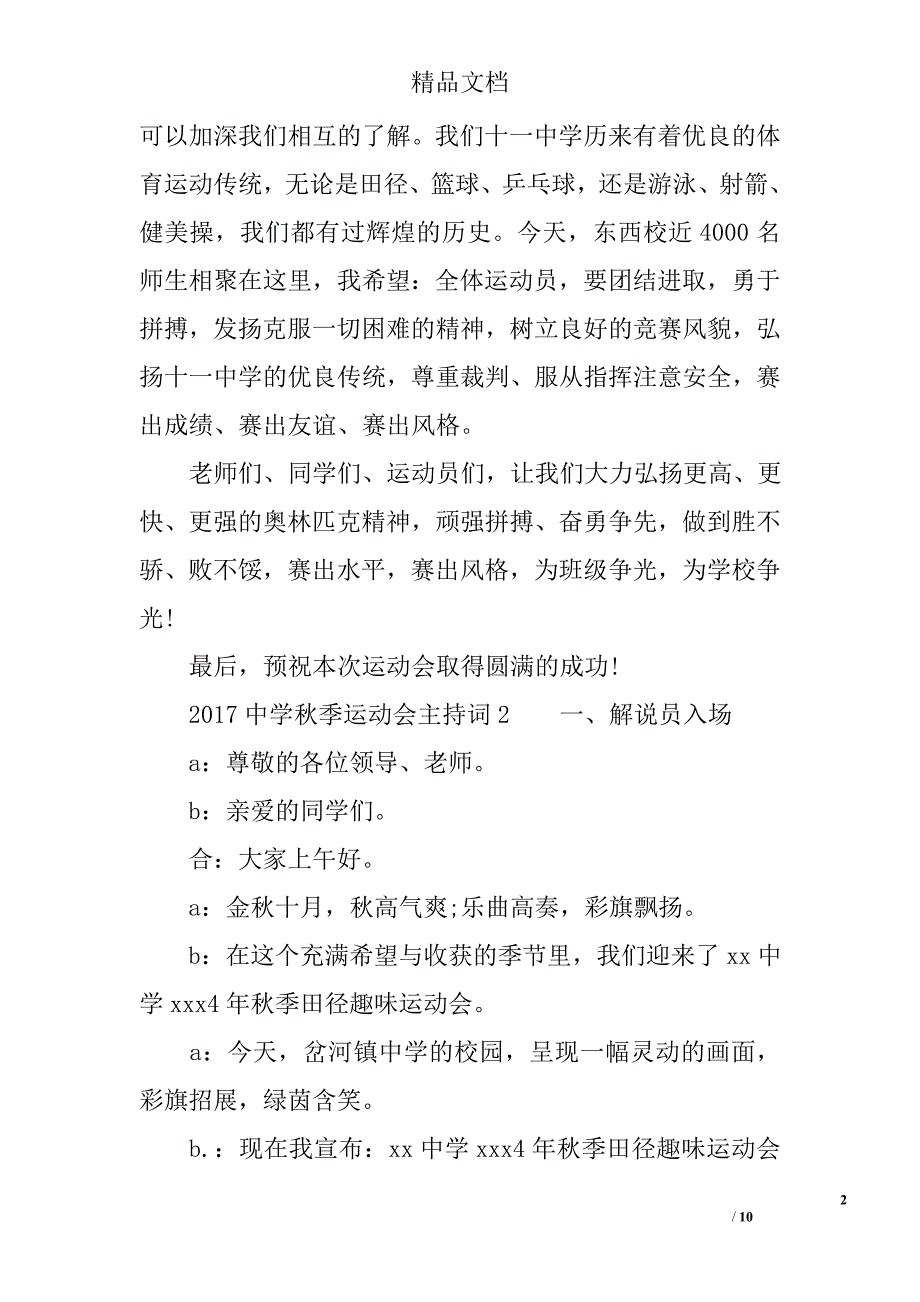 精品文档
可以加深我们相互的了解。我们十一中学历来有着优良的体
育运动传统，无论是田径、篮球、乒乓球，还是游泳、射箭、
健美操，我们都有过辉煌的历史。今天，东西校近 4000 名
师生相聚在这里，我希望：全体运动员，要团结进取，勇于
拼搏，发扬克服一切困难的精神，树立良好的竞赛风貌，弘
扬十一中学的优良传统，尊重裁判、服从指挥注意安全，赛
出成绩、赛出友谊、赛出风格。
老师们、同学们、运动员们，让我们大力弘扬更高、更
快、更强的奥林匹克精神，顽强拼搏、奋勇争先，做到胜不
骄、败不馁，赛出水平，赛出风格，为班级争光，为学校争
光!
最后，预祝本次运动会取得圆满的成功!
2017 中学秋季运动会主持词 2 一、解说员入场
a：尊敬的各位领导、老师。
b：亲爱的同学们。
合：大家上午好。
a：金秋十月，秋高气爽;乐曲高奏，彩旗飘扬。
b：在这个充满希望与收获的季节里，我们迎来了 xx 中
学 xxx4 年秋季田径趣味运动会。
a：今天，岔河镇中学的校园，呈现一幅灵动的画面，
彩旗招展，绿茵含笑。
b.：现在我宣布：xx 中学 xxx4 年秋季田径趣味运动会
2
/ 10